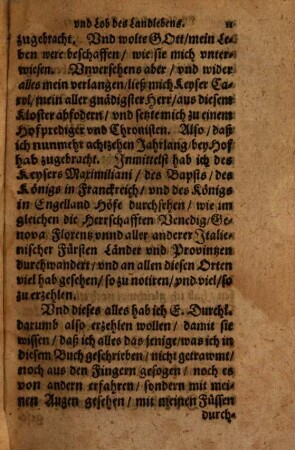 vnd Lob des Landlebens. 11
zugebracht. Vnd wolte GOtt/mein Le-
ben were beschaffen/ wie sie mich vnter-
wiesen. Vnversehens aber/ vnd wider
alles mein verlangen/ließ mich Keyser Ca-
rol/mein aller gnädigster Herr/aus diesem
Kloster abfodern/ vnd setzte mich zu einem
Hofprediger vnd Chronisten. Also/ daß
ich nunmehr achtzehen Jahrlang/bey Hof
hab zugebracht. Inmittelst hab ich des
Keysers Maximiliani/ des Bapsts/ des
Königs in Franckreich/ vnd des Königs
in Engelland Höfe durchsehen/ wie im
gleichen die Herrschafften Venedig/Ge-
nova Florentz vnnd aller anderer Italie-
nischer Fürsten Länder vnd Provintzen
durchwandert/ vnd an allen diesen Orten
viel hab gesehen/ so zu notiren/ vnd viel/ so
zu erzehlen.
Vnd dieses alles hab ich E. Durchl.
darumb also erzehlen wollen/ damit sie
wissen/ daß ich alles das jenige/was ich in
diesem Buch geschrieben/ nicht getrawmt/
noch aus den Fingern gesogen/ noch es
von andern erfahren/ sondern mit mei-
nen Augen gesehen/ mit meinen Füssen
durch-